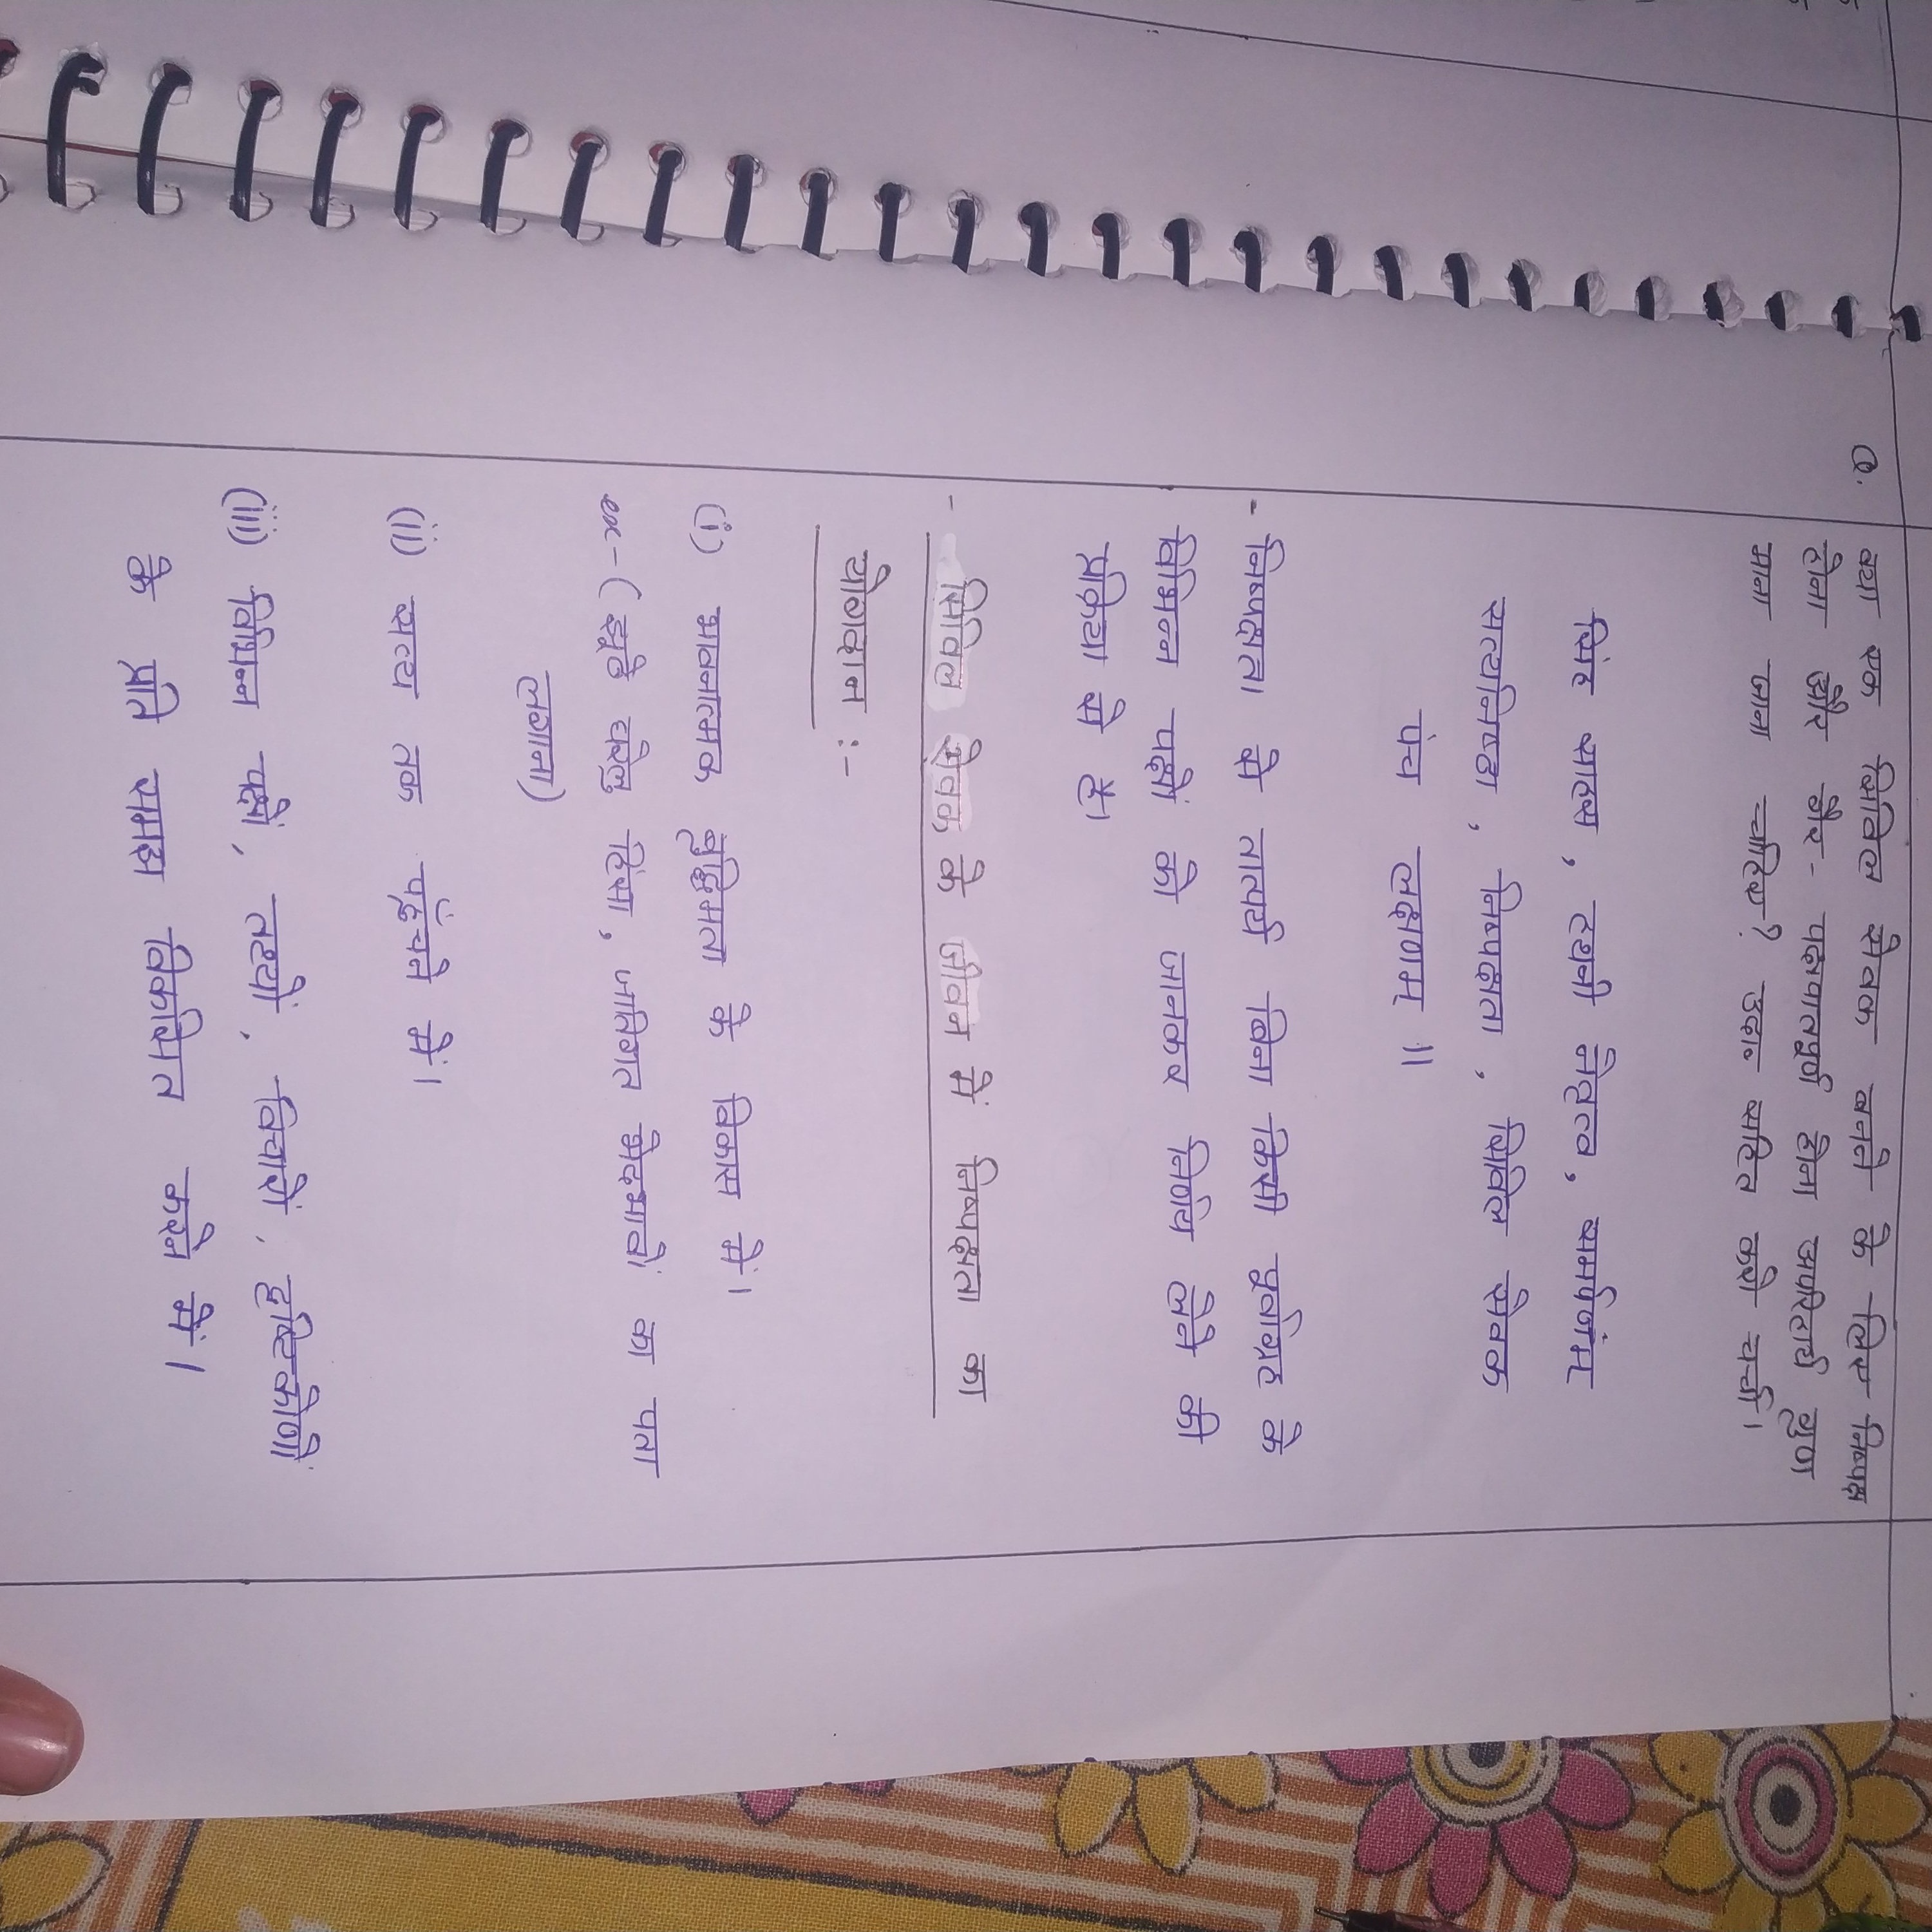 Q. क्या एक सिविल सेवक बनने के लिए निष्पक्ष
होना और गैर- पक्षपातपूर्ण होना अपरिहार्य गुण
माना जाना चाहिए? उदा॰ सहित करो चर्चा।
सिंह साहस, टहनी नेतृत्व, समर्पणंम्
सत्यनिष्ठा, निष्पक्षता, सिविल सेवक
पंच लक्षणम् ॥
- निष्पक्षता से तात्पर्य बिना किसी पूर्वाग्रह के
विभिन्न पक्षों को जानकर निर्णय लेने की
प्रक्रिया से है।
- सिविल सेवक के जीवन में निष्पक्षता का
योगदान :-
(i) भावनात्मक बुद्धिमता के विकास में।
ex - (झूठे घरेलु हिंसा, जातिगत भेदभावों का पता
लगाना)
(ii) सत्य तक पहुँचने में।
(iii) विभिन्न पक्षों, तथ्यों, विचारों, दृष्टिकोणों
के प्रति समझ विकसित करने में।